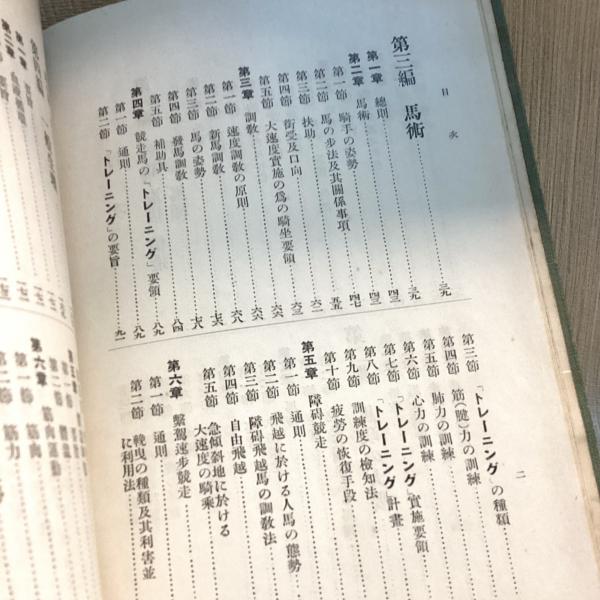 目次
第三編 馬術
第一章 總則 三九
第二章 馬術 三九
第一節 騎手の姿勢 四三
第二節 馬の步法及其關係事項 四七
第三節 扶助 五五
第四節 銜受及口向 六二
第五節 大速度實施の爲の騎坐要領 六三
第三章 調敎 六六
第一節 速度調敎の原則 六六
第二節 新馬調敎 六八
第三節 馬の姿勢 七六
第四節 發馬調敎 七八
第五節 補助具 八四
第四章 競走馬の「トレーニング」要領 八九
第一節 通則 八九
第二節 「トレーニング」の要旨 九一
二
第三節 「トレーニング」の種類
第四節 筋(腱)力の訓練
第五節 肺力の訓練
第六節 心力の訓練
第七節 「トレーニング」實施要領
第八節 「トレーニング」計畫
第九節 訓練度の檢知法
第十節 疲勞の恢復手段
第五章 障碍競走
第一節 通則
第二節 飛越に於ける人馬の態勢
第三節 障碍飛越馬の調敎法
第四節 自由飛越
第五節 急傾斜地に於ける
大速度の騎乘
第六章 繫駕速步競走
第一節 通則
第二節 輓曳の種類及其利害並
に利用法
第六章
第一節 筋肉
第二節 筋力